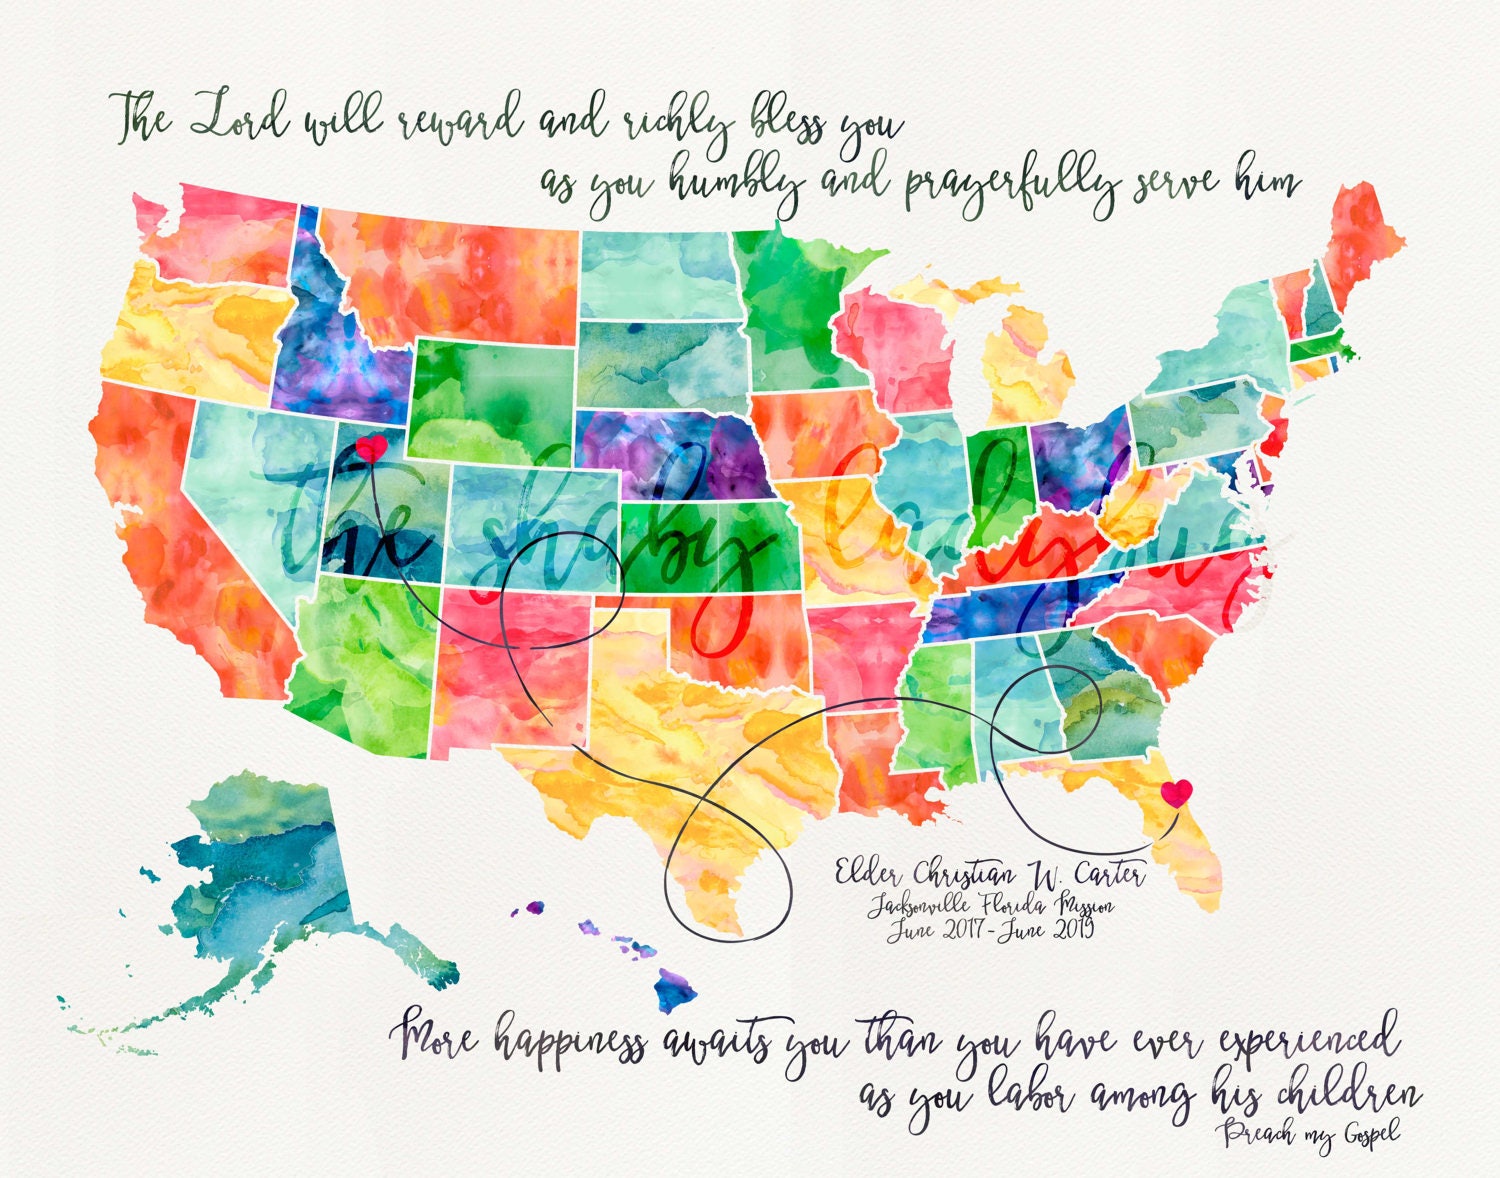 The Lord will reward and richly bless you
as you humbly and prayerfully serve him
the shabby ladybug
Elder Christian W. Carter
Jacksonville Florida Mission
June 2017-June 2019
More happiness awaits you than you have ever experienced
as you labor among his children
Preach my Gospel